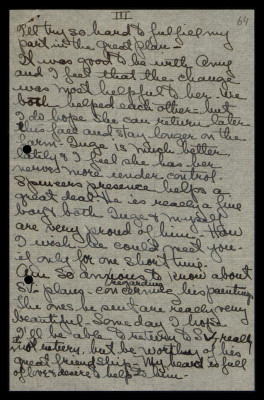 III
64
I'll try so hard to fulfiel my
part in the great plan—
It was good to be with Amy
and I feel that the change
was most helpful to her. We
both helped each other— but
I do hope she can return later
this fall and stay longer on the
farm— Inge is much better
lately & I feel she has her
nerves more under control.
Spencers presence helps a
great deal. He is really a fine
boy & both Inge & myself
are very proud of him— How
I wish he could meet you—
if only for one short time.
Am so anxious to know about
S— plans regarding
continuing his painting
The ones he sent are really very
beautiful. Some day I hope
I'll be able to return to S—, really
not return, but be worthy of his
great friendship— My heart is full
of love & desire to help him—